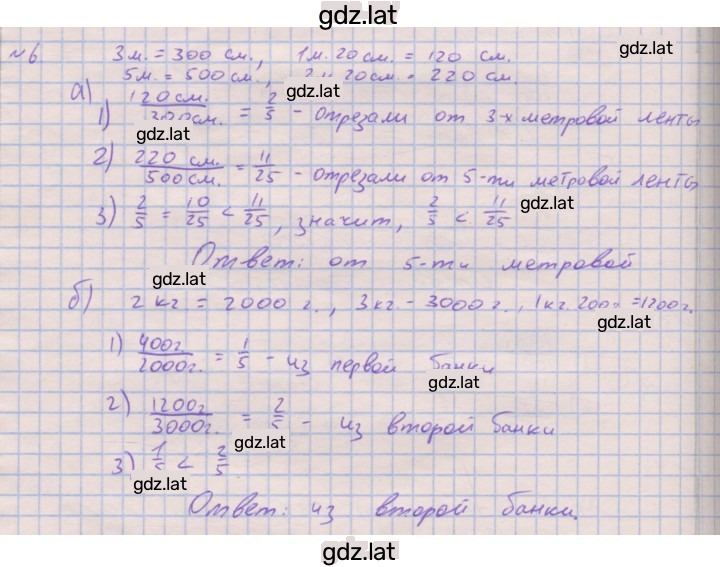 gdz.lat
№6. 3 м. = 300 см., 1 м. 20 см. = 120 см. gdz.lat
5 м. = 500 см., 20 см. = 220 см.
а) gdz.lat
1) 120 см. / см. = 2/5 - отрезали от 3-х метровой ленты
gdz.lat
2) 220 см. / 500 см. = 11/25 - отрезали от 5-ти метровой ленты
3) 2/5 = 10/25 < 11/25, значит, 2/5 < 11/25 gdz.lat
Ответ: от 5-ти метровой
gdz.lat
б) 2 кг = 2000 г., 3 кг - 3000 г., 1 кг. 200 г = 1200 г.
gdz.lat
1) 400 г. / 2000 г. = 1/5 - из первой банки
gdz.lat
2) 1200 г / 3000 г. = 2/5 - из второй банки
gdz.lat
3) 1/5 < 2/5
gdz.lat
Ответ: из второй банки.
gdz.lat